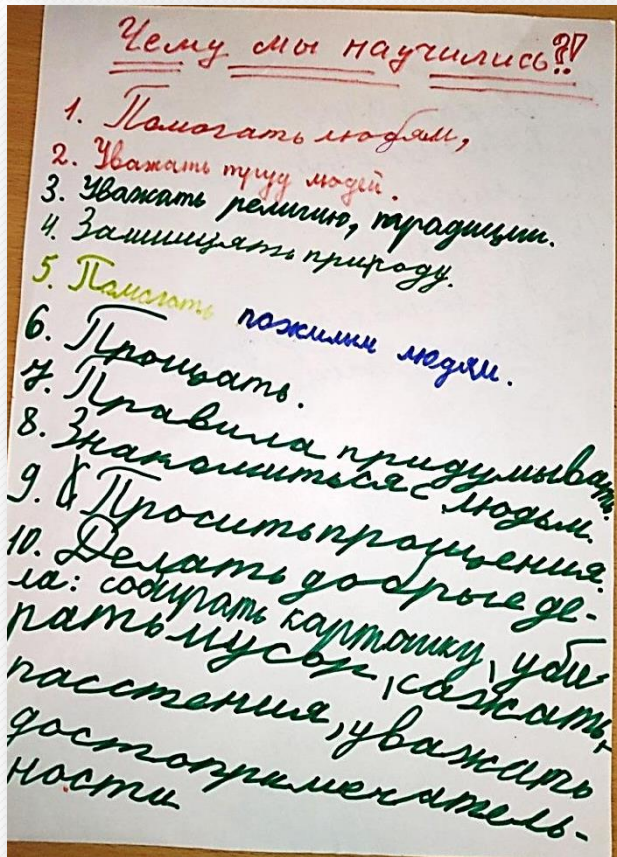 Чему мы научились?!
1. Помогать людям,
2. Уважать труд людей.
3. Уважать религию, традиции.
4. Защищять природу.
5. Помогать пожилым людям.
6. Прощать.
7. Правила придумывать.
8. Знакомиться с людьм.
9. Просить прощения.
10. Делать добрые де-
ла: собирать картошку, уби-
рать мусор, сажать,
расстения, уважать
достопримечатель-
ности